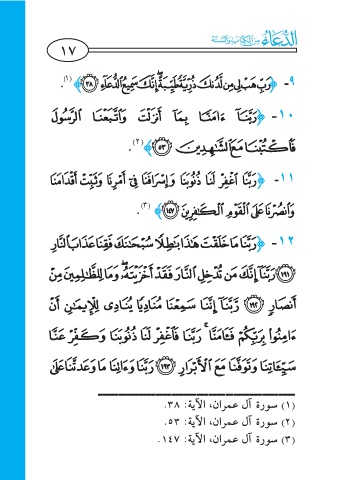 الدُّعَاءُ مِنَ الكِتَابِ وَالسُّنَّةِ
١٧
٩- ﴿رَبِّ هَبْ لِي مِن لَّدُنكَ ذُرِّيَّةً طَيِّبَةً ۖ إِنَّكَ سَمِيعُ الدُّعَاءِ ۝٣٨﴾(١).
١٠- ﴿رَبَّنَآ ءَامَنَّا بِمَآ أَنزَلْتَ وَاتَّبَعْنَا الرَّسُولَ
فَاكْتُبْنَا مَعَ الشَّٰهِدِينَ ۝٥٣﴾(٢).
١١- ﴿رَبَّنَا اغْفِرْ لَنَا ذُنُوبَنَا وَإِسْرَافَنَا فِيٓ أَمْرِنَا وَثَبِّتْ أَقْدَامَنَا
وَانصُرْنَا عَلَى الْقَوْمِ الْكَٰفِرِينَ ۝١٤٧﴾(٣).
١٢- ﴿رَبَّنَا مَا خَلَقْتَ هَٰذَا بَٰطِلًا سُبْحَٰنَكَ فَقِنَا عَذَابَ النَّارِ
۝١٩١ رَبَّنَآ إِنَّكَ مَن تُدْخِلِ النَّارَ فَقَدْ أَخْزَيْتَهُۥ ۖ وَمَا لِلظَّٰلِمِينَ مِنْ
أَنصَارٍ ۝١٩٢ رَّبَّنَآ إِنَّنَا سَمِعْنَا مُنَادِيًا يُنَادِي لِلْإِيمَٰنِ أَنْ
ءَامِنُوا بِرَبِّكُمْ فَـَٔامَنَّا ۚ رَبَّنَا فَاغْفِرْ لَنَا ذُنُوبَنَا وَكَفِّرْ عَنَّا
سَيِّـَٔاتِنَا وَتَوَفَّنَا مَعَ الْأَبْرَارِ ۝١٩٣ رَبَّنَا وَءَاتِنَا مَا وَعَدتَّنَا عَلَىٰ
(١) سورة آل عمران، الآية: ٣٨.
(٢) سورة آل عمران، الآية: ٥٣.
(٣) سورة آل عمران، الآية: ١٤٧.